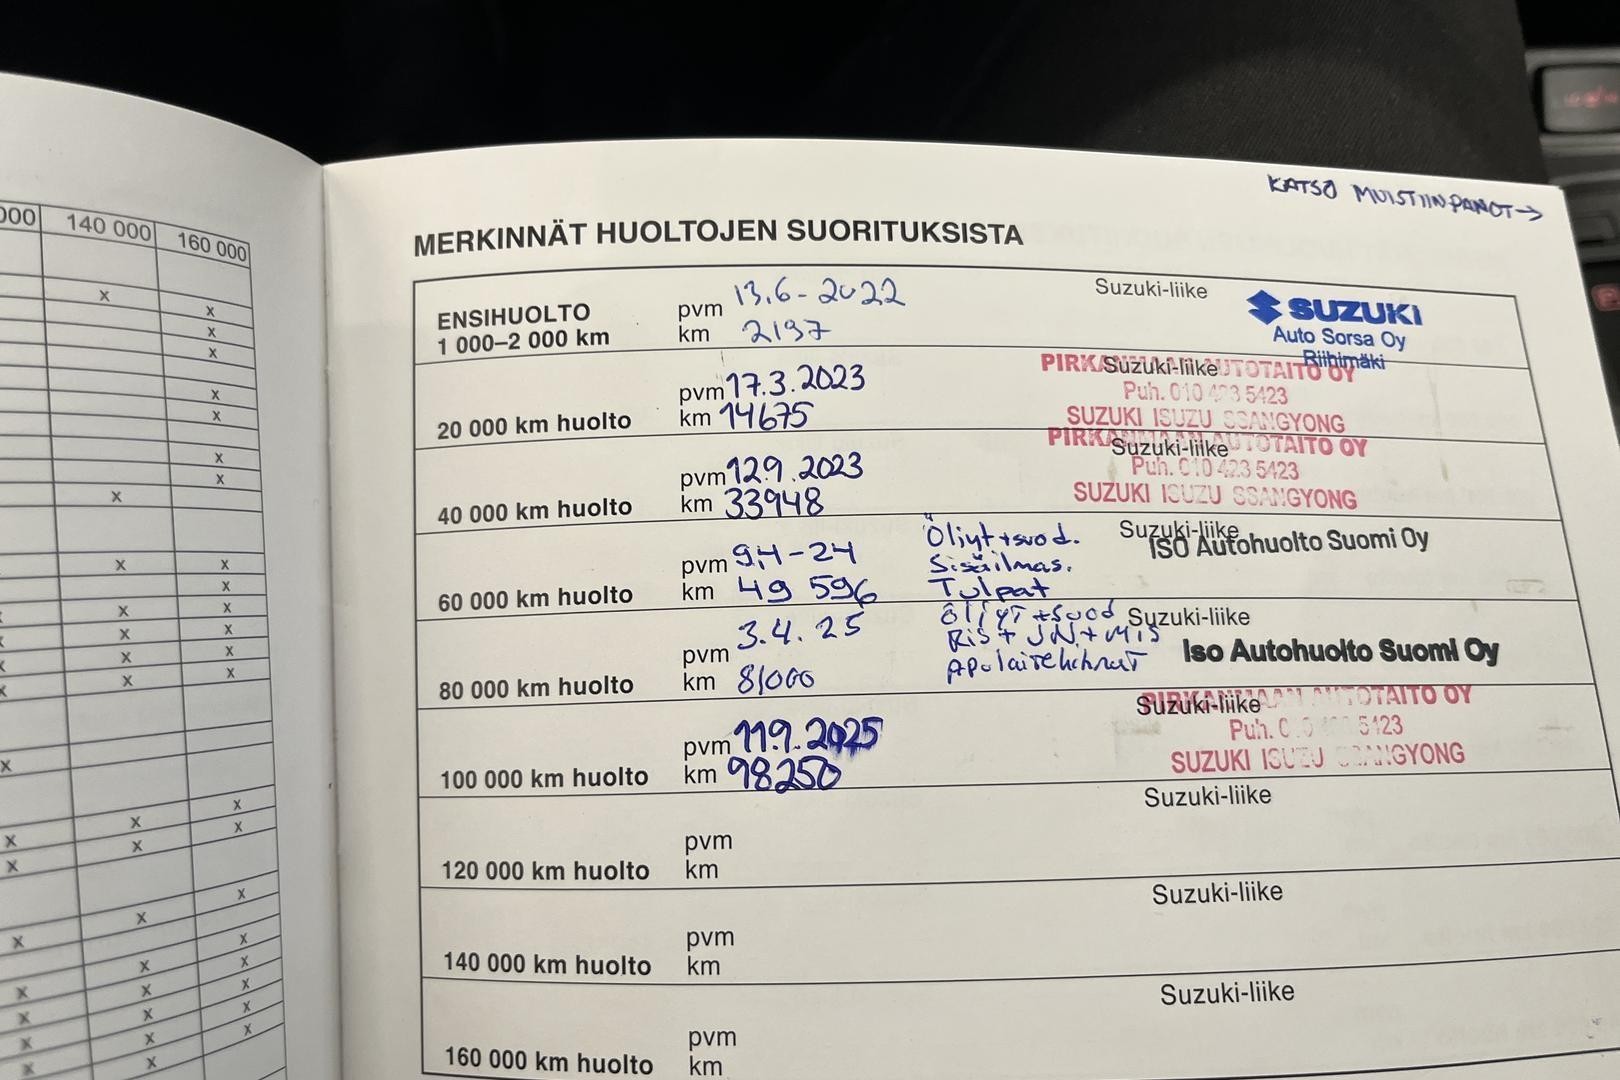 000 140 000 160 000
KATSO MUISTIINPANOT →
MERKINNÄT HUOLTOJEN SUORITUKSISTA
ENSIHUOLTO
1 000–2 000 km
pvm 13.6-2022
km 2197
Suzuki-liike
SUZUKI
Auto Sorsa Oy
Riihimäki
20 000 km huolto
pvm 17.3.2023
km 14675
Suzuki-liike
PIRKANMAAN AUTOTAITO OY
Puh. 010 423 5423
SUZUKI ISUZU SSANGYONG
40 000 km huolto
pvm 12.9.2023
km 33948
Suzuki-liike
PIRKANMAAN AUTOTAITO OY
Puh. 010 423 5423
SUZUKI ISUZU SSANGYONG
60 000 km huolto
pvm 9.4-24
km 49 596
Öljyt+suod.
Sisäilmas.
Tulpat
Suzuki-liike
ISO Autohuolto Suomi Oy
80 000 km huolto
pvm 3.4.25
km 81000
Öljyt+suod
Ris+JN+Mis
Suzuki-liike
Iso Autohuolto Suomi Oy
100 000 km huolto
pvm 11.9.2025
km 98250
Suzuki-liike
PIRKANMAAN AUTOTAITO OY
Puh. 010 423 5423
SUZUKI ISUZU SSANGYONG
120 000 km huolto
pvm
km
Suzuki-liike
140 000 km huolto
pvm
km
Suzuki-liike
160 000 km huolto
pvm
km
Suzuki-liike